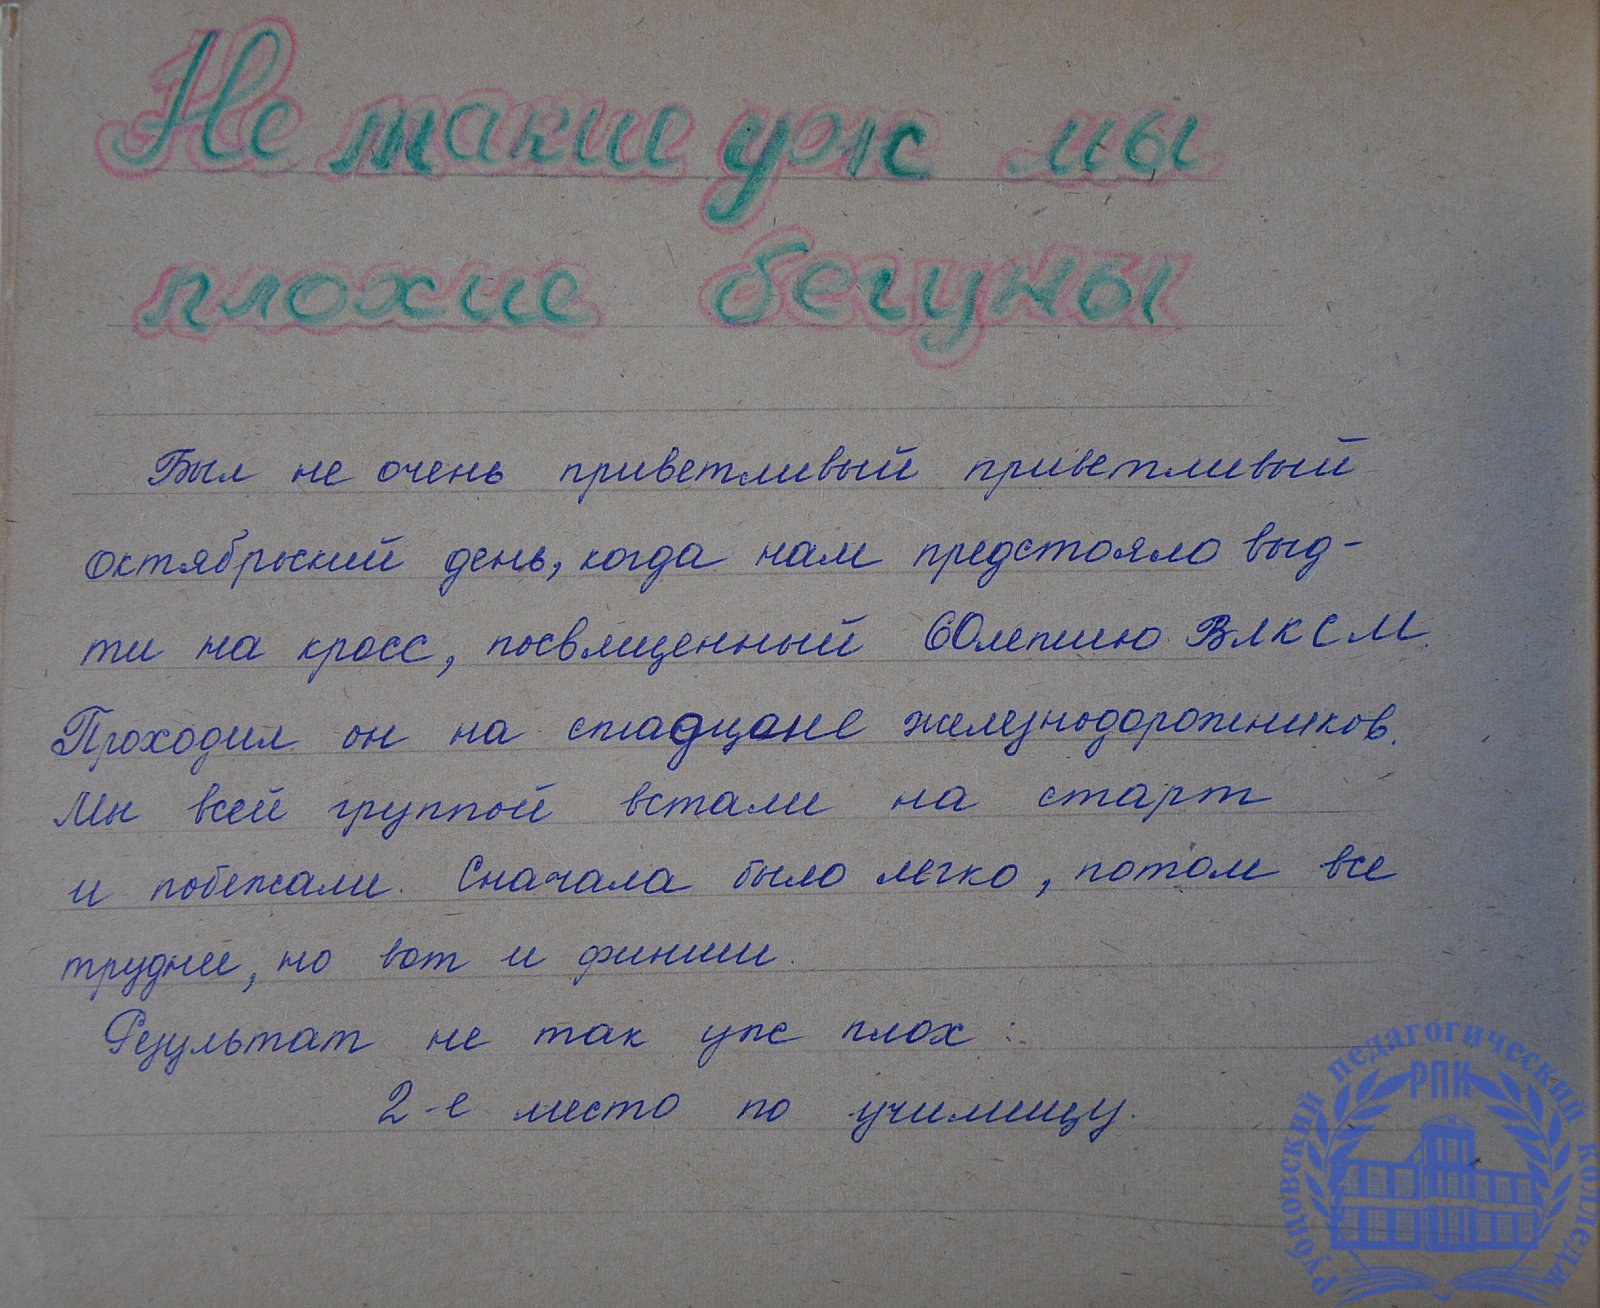 Не такие уж мы
плохие бегуны
Был не очень приветливый приветливый
октябрьский день, когда нам предстояло выд-
ти на кросс, посвященный 60летию ВЛКСМ.
Проходил он на стадионе железнодорожников.
Мы всей группой встали на старт
и побежали. Сначала было легко, потом все
труднее, но вот и финиш.
Результат не так уж плох:
2-е место по училищу.
Рубцовский педагогический колледж
РПК